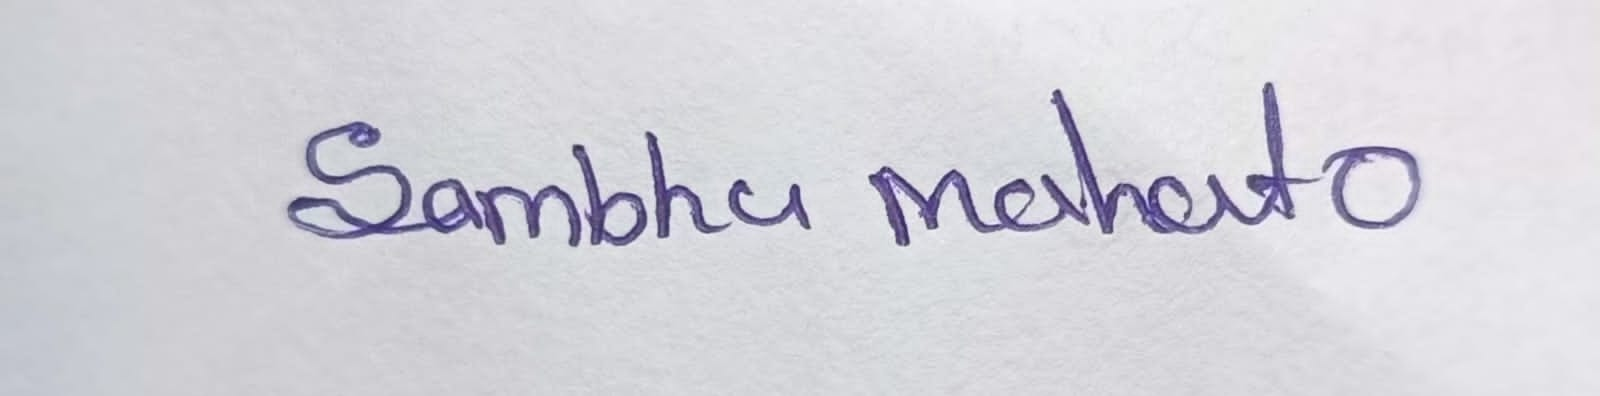 Sambhu Mahato